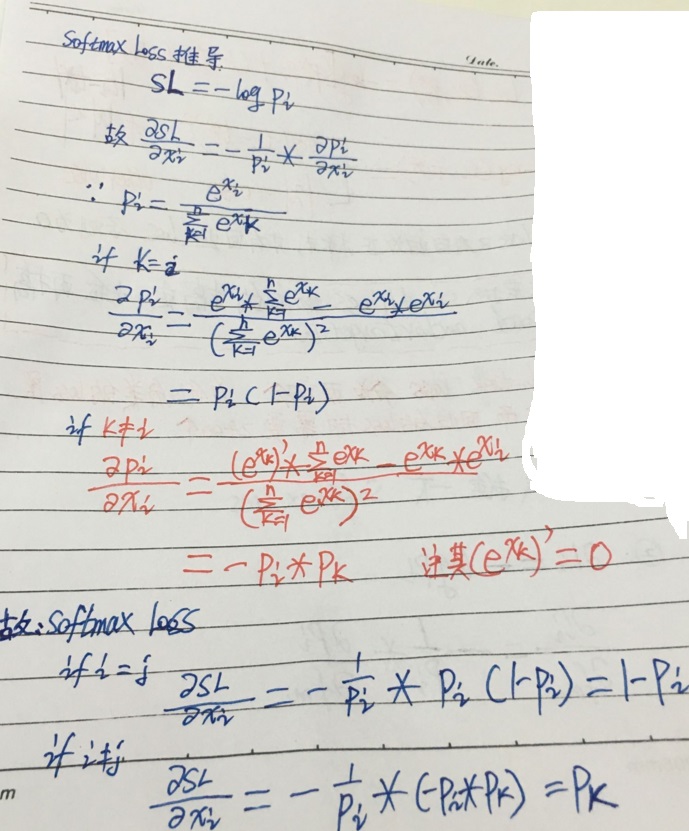 Softmax Loss 推导
Date.
SL = -log Pi
故 ∂SL/∂xi = -1/Pi * ∂Pi/∂xi
∵ Pi = e^xi / ∑_{k=1}^{n} e^xk
if k=i
∂Pi/∂xi = (e^xi * ∑_{k=1}^{n} e^xk - e^xi * e^xi) / (∑_{k=1}^{n} e^xk)^2
= Pi (1-Pi)
if k≠i
∂Pi/∂xi = ((e^xk)' * ∑_{k=1}^{n} e^xk - e^xk * e^xi) / (∑_{k=1}^{n} e^xk)^2
= -Pi * Pk 注其(e^xk)' = 0
故: Softmax loss
if i=j ∂SL/∂xi = -1/Pi * Pi (1-Pi) = 1-Pi
if i≠j
∂SL/∂xi = -1/Pi * (-Pi*Pk) = Pk
m